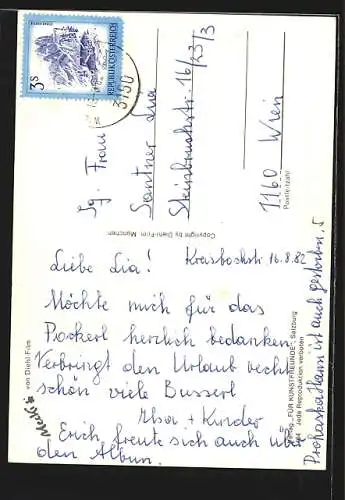 Liebe Lia! Krasbachstr 16.8.82
Möchte mich für das
Pockerl herzlich bedanken
Verbringt den Urlaub recht
schön viele Busserl
Elsa + Kinder
Erich freute sich auch über
den Album.
Prohaskaflanni ist auch gestorben,
Sg. Frau
Santner Lia
Steinbruchstr. 16/23/3
1160 Wien
Postleitzahl
3S
REPUBLIK ÖSTERREICH
3190
Copyright by Diehl-Film, München
von Diehl Film
Mecki
Verlag „FÜR KUNSTFREUNDE", Salzburg
Jede Reproduktion verboten